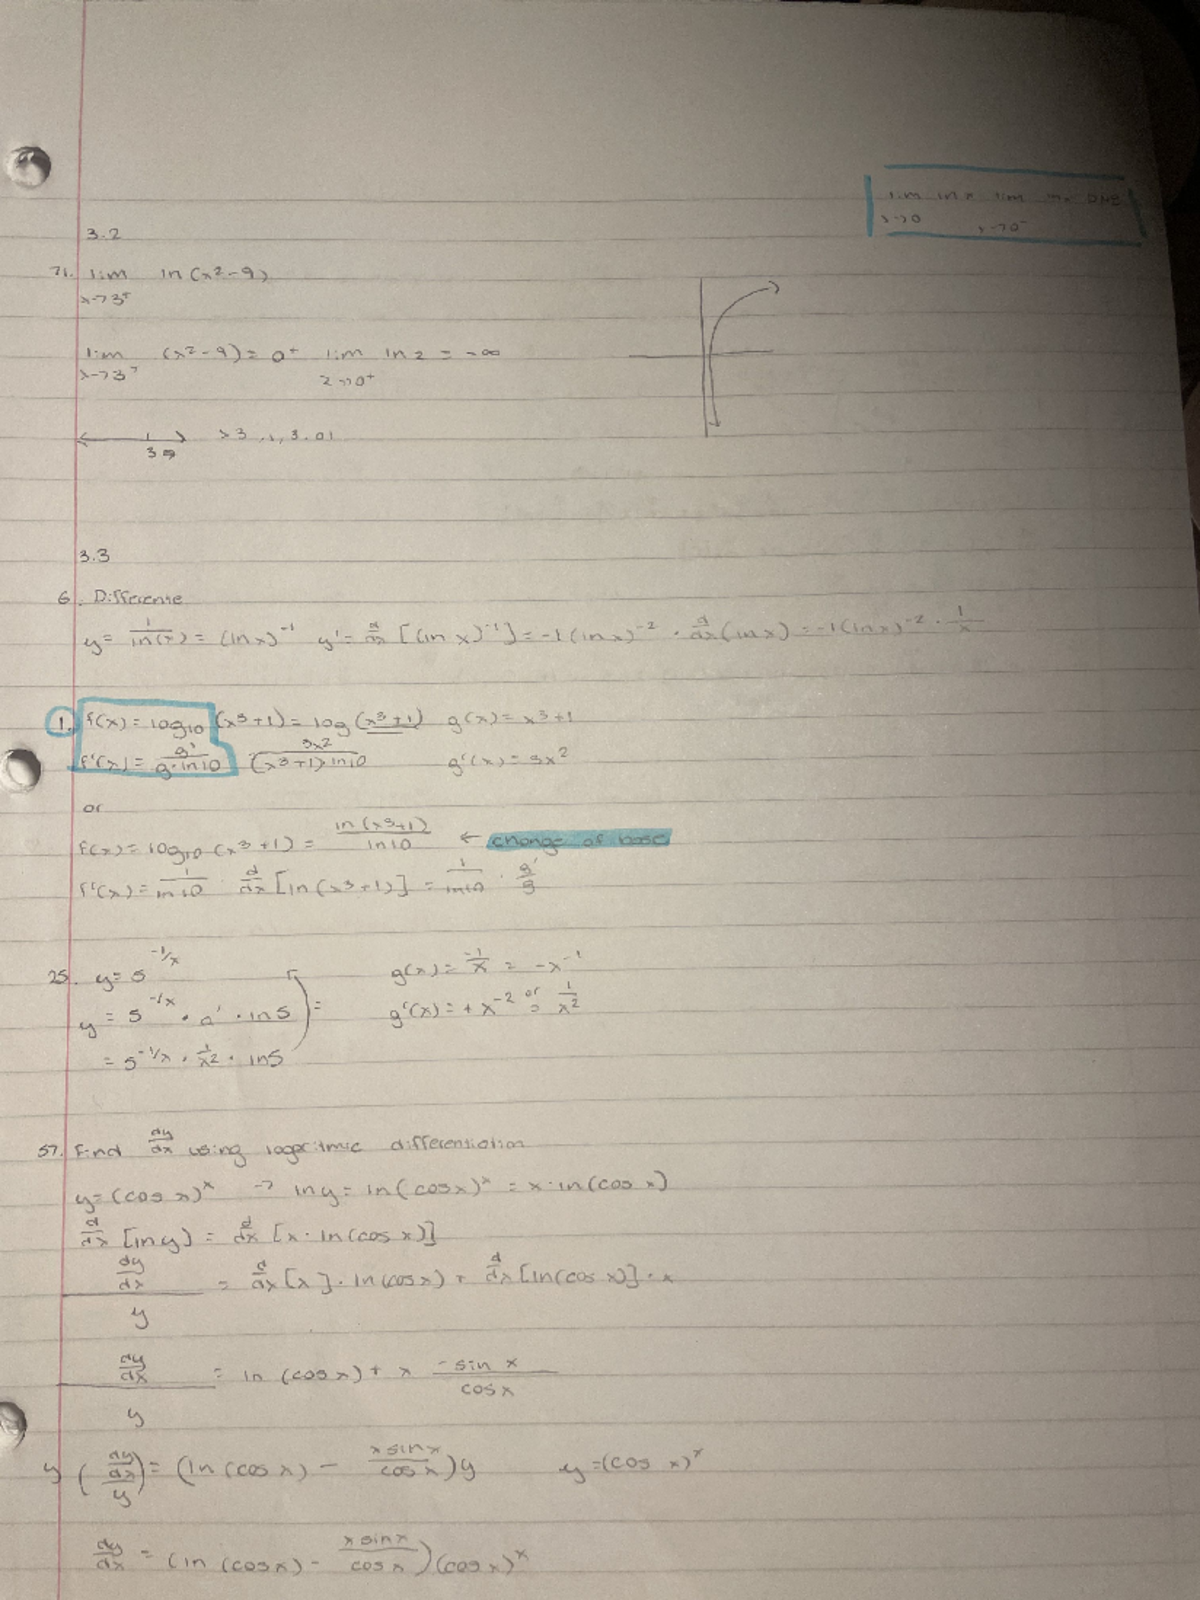 lim ln x lim ln x DNE
x→0 x→0⁻
3.2
71. lim ln (x²-9)
x→3⁺
lim (x²-9) = 0⁺ lim ln z = -∞
x→3⁺ z→0⁺
>3 3.01
3
3.3
6. Differente
y = 1/ln(x) = (ln x)⁻¹ y' = d/dx [(ln x)⁻¹] = -1(ln x)⁻² · d/dx (ln x) = -1(ln x)⁻² · 1/x
1. f(x) = log₁₀ (x³+1) = log (x³+1) g(x) = x³+1
f'(x) = g'/(g·ln 10) 3x²/((x³+1) ln 10) g'(x) = 3x²
or
f(x) = log₁₀ (x³+1) = ln (x³+1)/ln 10 ← change of base
f'(x) = 1/ln 10 · d/dx [ln (x³+1)] = 1/ln 10 · g'/g
25. y = 5^(-1/x) g(x) = -1/x = -x⁻¹
y = 5^(-1/x) · g' · ln 5 = g'(x) = + x⁻² or 1/x²
= 5^(-1/x) · 1/x² · ln 5
57. Find dy/dx using logaritmic differentiation
y = (cos x)ˣ → ln y = ln (cos x)ˣ = x · ln (cos x)
d/dx [ln y) = d/dx [x · ln (cos x)]
dy/dx = d/dx [x] · ln (cos x) + d/dx [ln (cos x)] · x
y
dy/dx = ln (cos x) + x -sin x/cos x
y
y ((dy/dx)/y) = (ln (cos x) - x sin x/cos x) y y = (cos x)ˣ
dy/dx = (ln (cos x) - x sin x/cos x) (cos x)ˣ